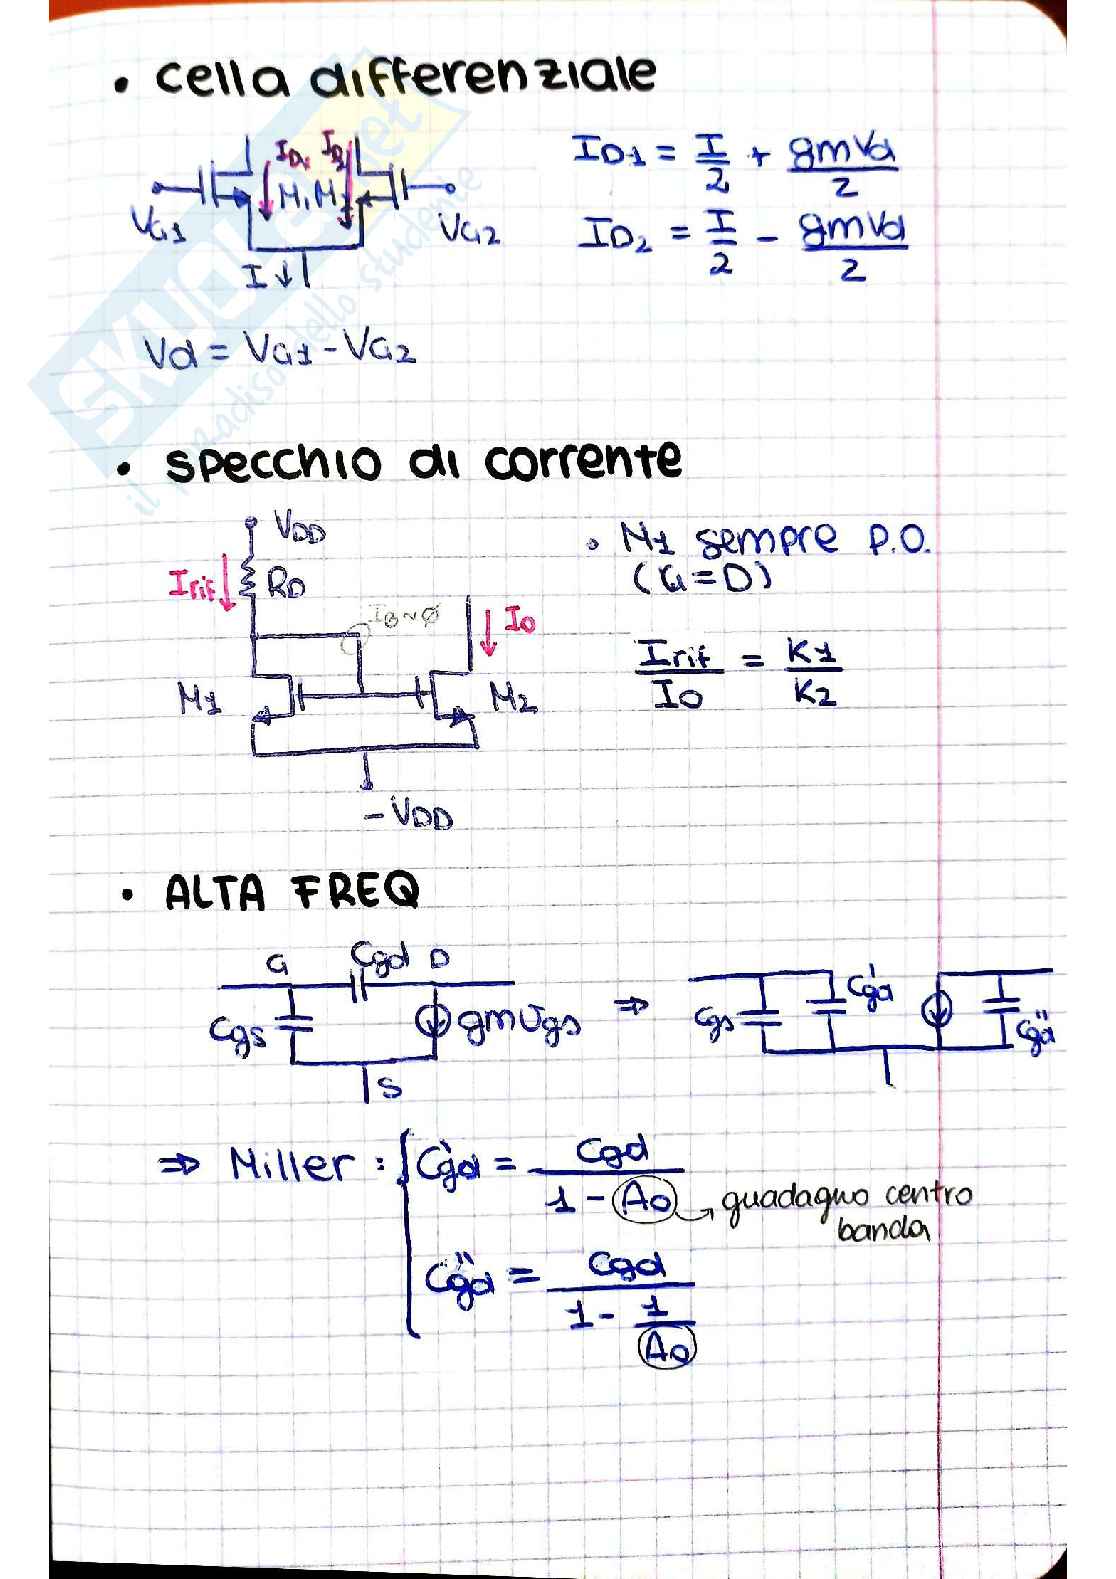 • Cella differenziale
ID1 ID2
M1 M2
VG1
VG2
I
ID1 = I/2 + gmVd/2
ID2 = I/2 - gmVd/2
Vd = VG1 - VG2
SKUOLA.net
il paradiso dello studente
• Specchio di corrente
VDD
Irif
RD
IG~Ø
Io
M1
M2
-VDD
• M1 sempre P.O.
(G=D)
Irif/Io = K1/K2
• ALTA FREQ
G Cgd D
Cgs
gmVgs
S
⇒
Cgs
Cgd'
Cgd"
⇒ Miller: { Cgd' = Cgd/(1 - Ao) → guadagno centro
banda
Cgd" = Cgd/(1 - 1/Ao)